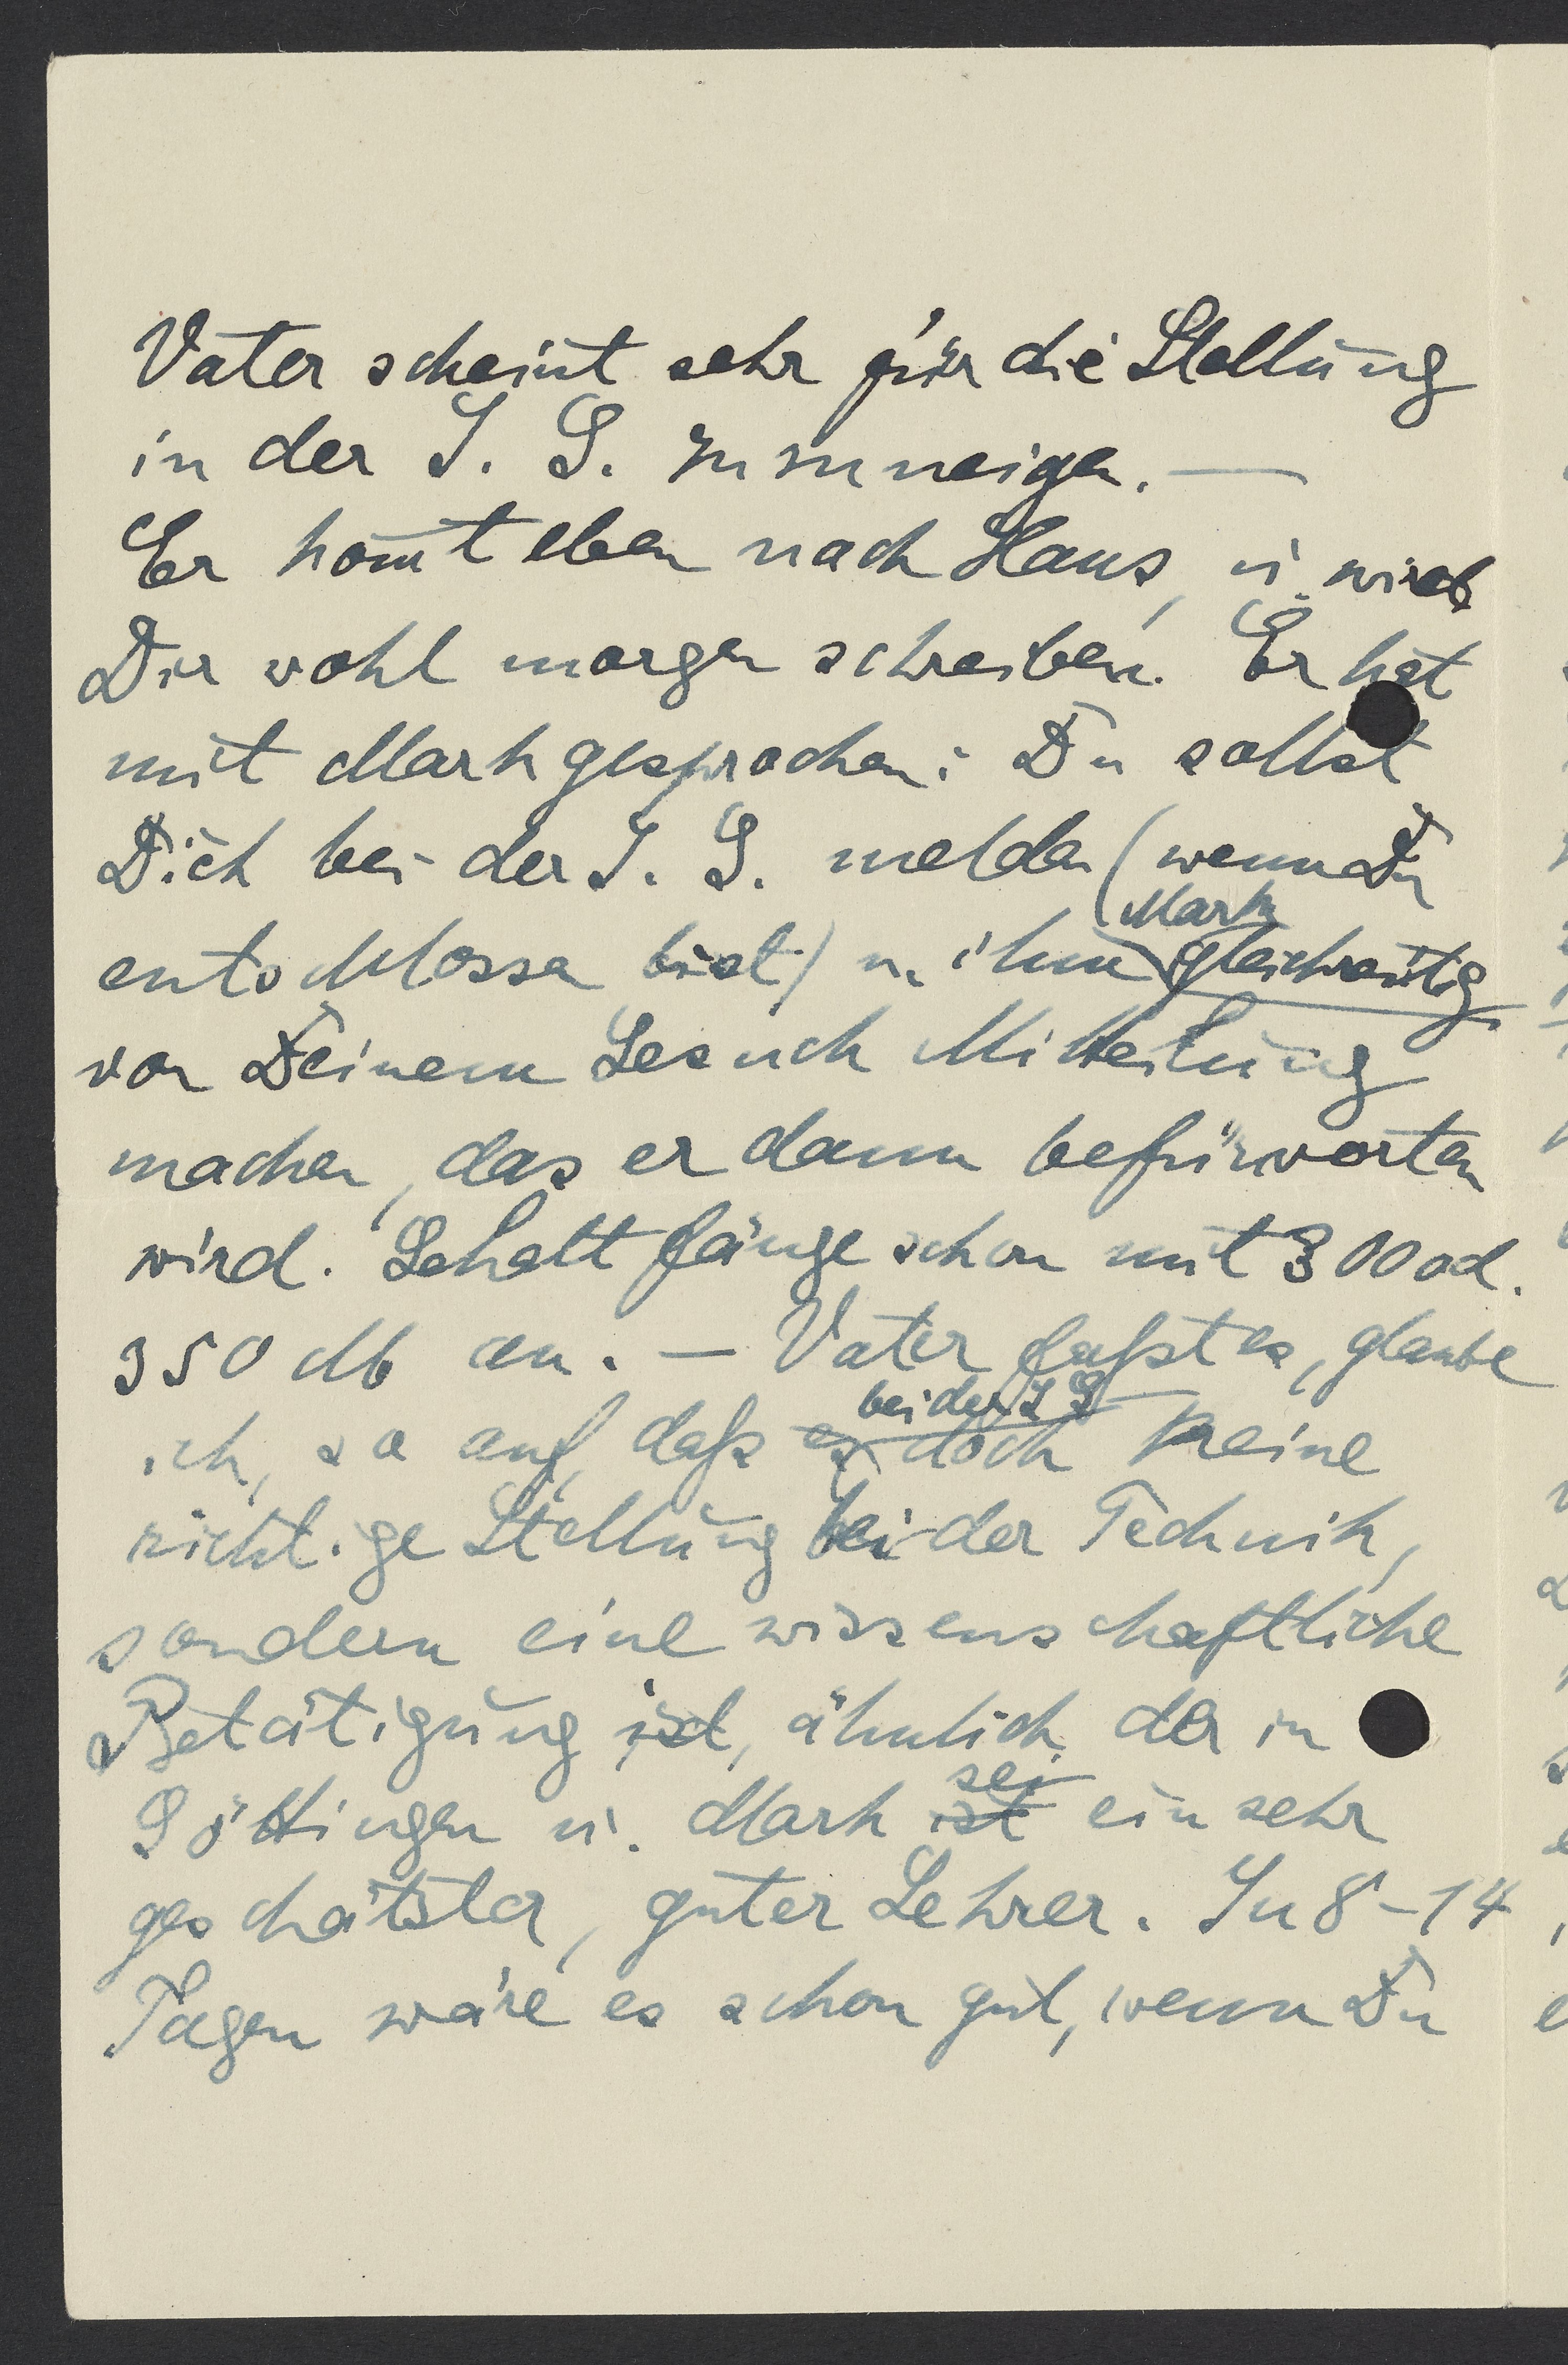 Vater scheint sehr für die Stellung
in der I. G. zu zu neigen. —
Er kom̅t eben nach Haus, u. wird
Dir wohl morgen schreiben. Er hat
mit Mark gesprochen: Du sollst
Dich bei der I. G. melden (wenn Du
entschlossen bist) u. ihm Mark gleichzeitig
von Deinem Gesuch Mitteilung
machen, das er dann befürworten
wird. Gehalt fänge schon mit 300 od.
350 M an. — Vater faßt es, glaube
ich, so auf, daß es doch bei der I G keine
richtige Stellung bei der Technik,
sondern eine wissenschaftliche
Betätigung ist, ähnlich der in
Göttingen u. Mark ist sei ein sehr
geschätzter, guter Lehrer. In 8–14
Tagen wäre es schon gut, wenn Du